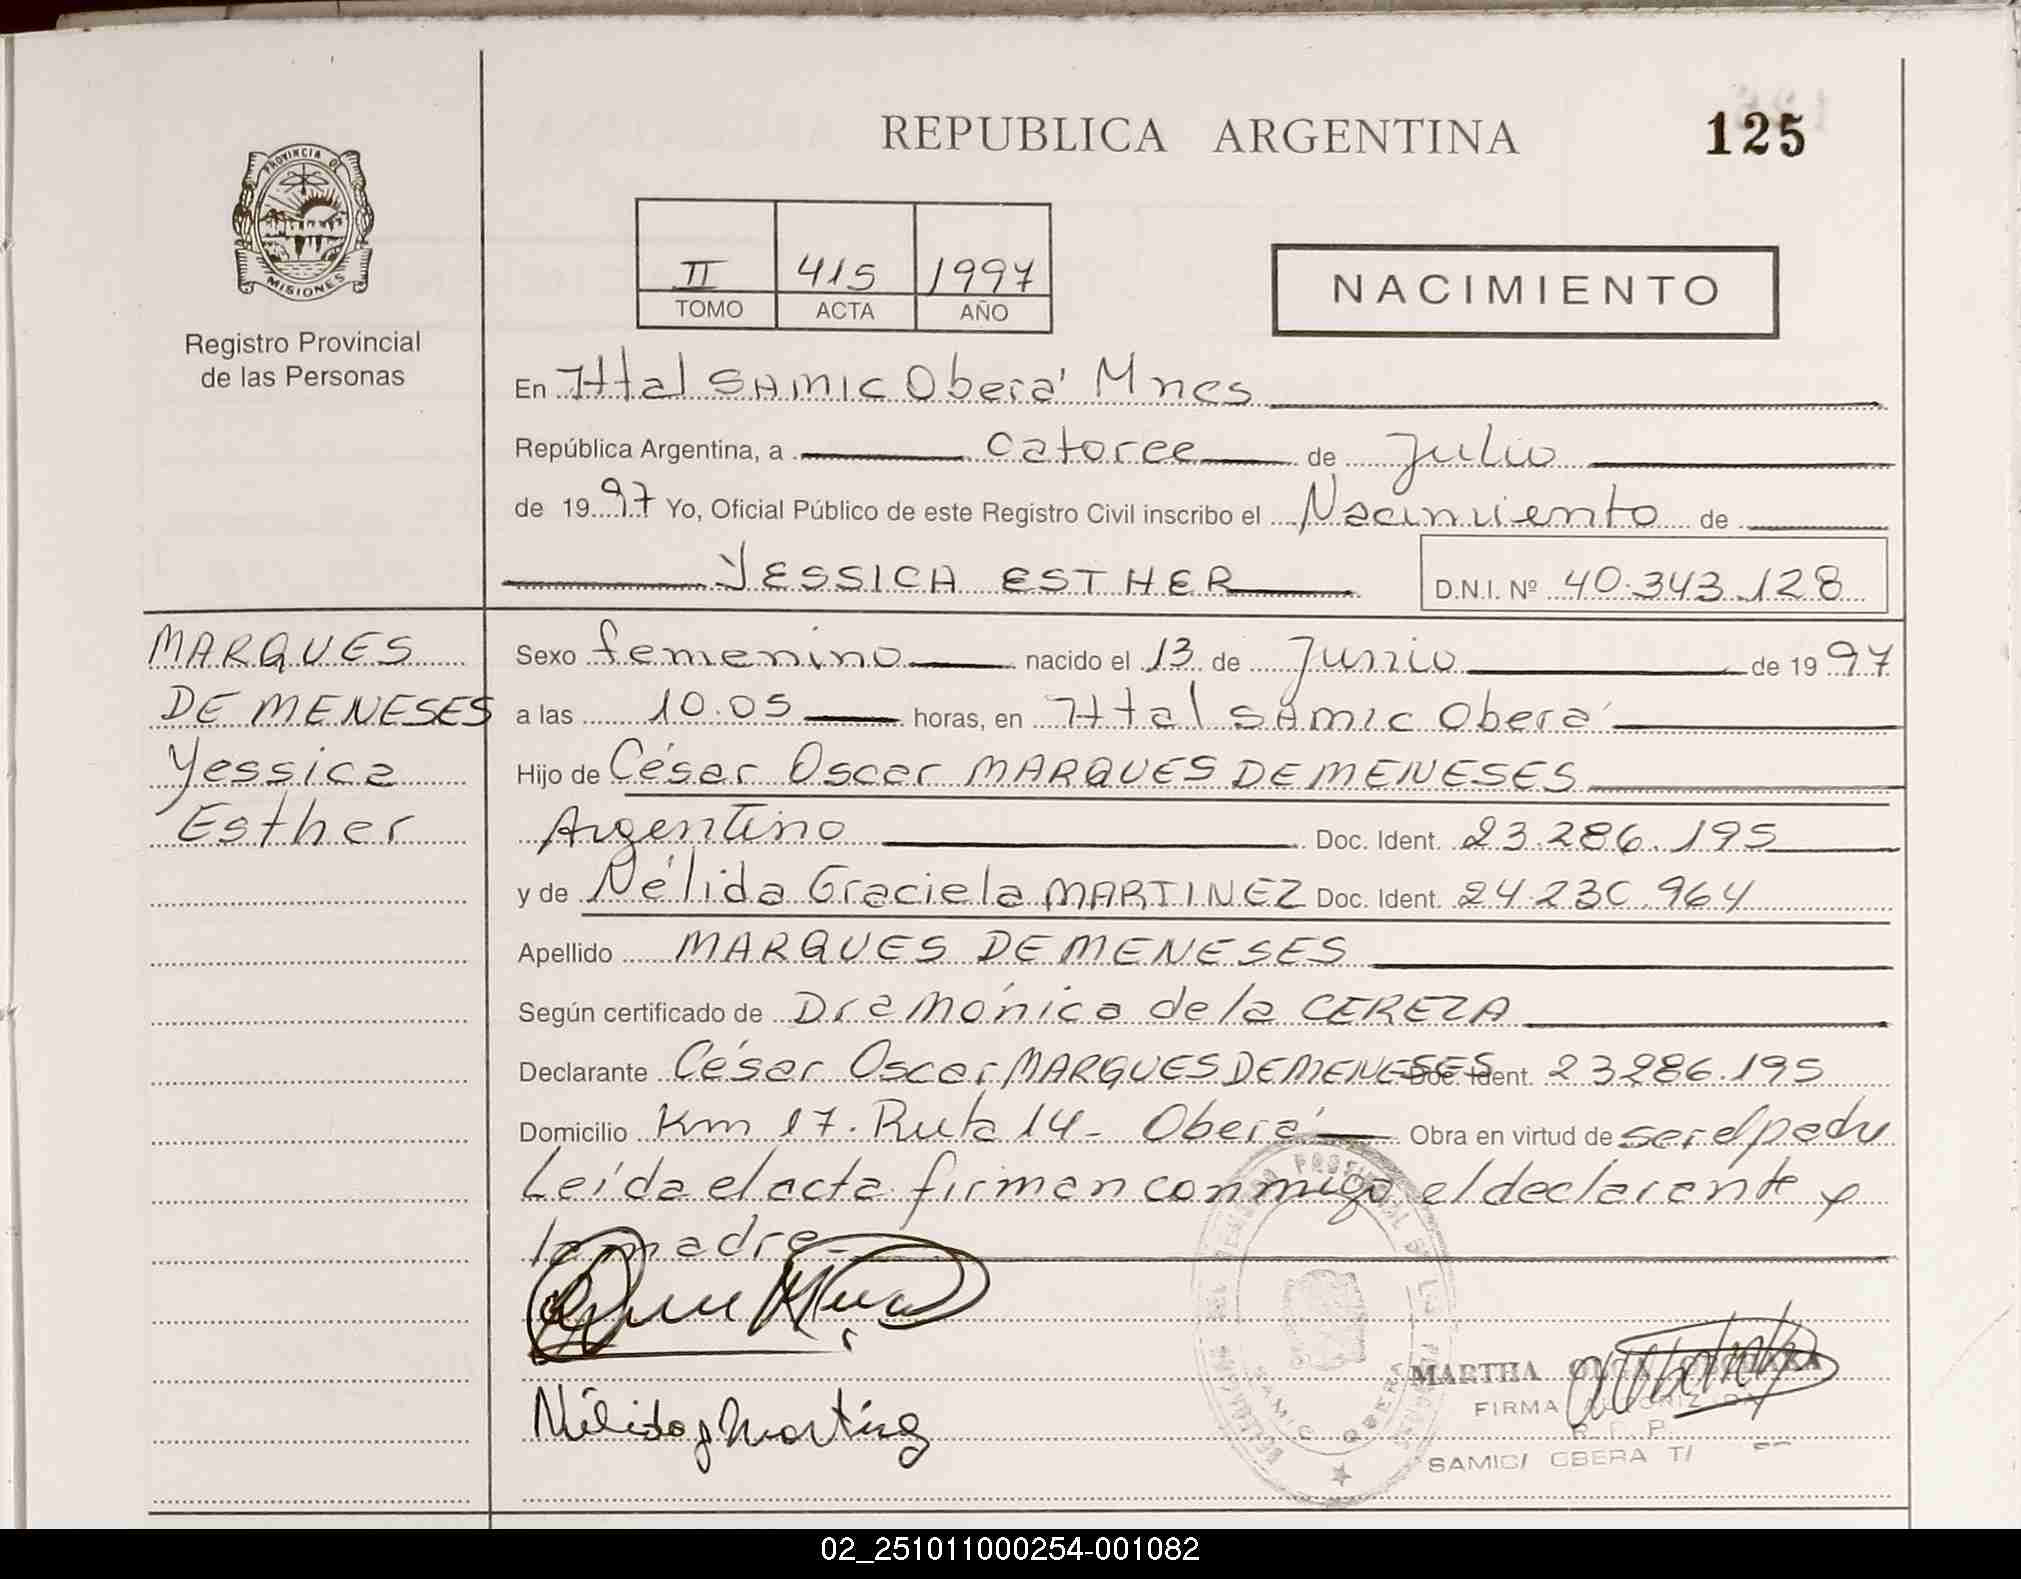 REPUBLICA ARGENTINA
125
PROVINCIA DE
MISIONES
Registro Provincial
de las Personas
II 415 1997
TOMO ACTA AÑO
NACIMIENTO
En Httal SAMIC Oberá Mnes
República Argentina, a catorce de Julio
de 1997 Yo, Oficial Público de este Registro Civil inscribo el Nacimiento de
YESSICA ESTHER
D.N.I. Nº 40.343.128
MARQUES
DE MENESES
Yessica
Esther
Sexo femenino nacido el 13 de Junio de 1997
a las 10.05 horas, en Httal SAMIC Oberá
Hijo de César Oscar MARQUES DE MENESES
Argentino Doc. Ident. 23.286.195
y de Nélida Graciela MARTINEZ Doc. Ident. 24.230.964
Apellido MARQUES DE MENESES
Según certificado de Dra Mónica de la CEREZA
Declarante César Oscar MARQUES DE MENESES Doc. Ident. 23286.195
Domicilio Km 17. Ruta 14- Oberá Obra en virtud de ser el padre
Leída el acta firman conmigo el declarante y
la madre.-
MARTHA OLGA
FIRMA AUTORIZADA
R. P. P.
SAMIC/ OBERA
SAMIC OBERA
02_251011000254-001082